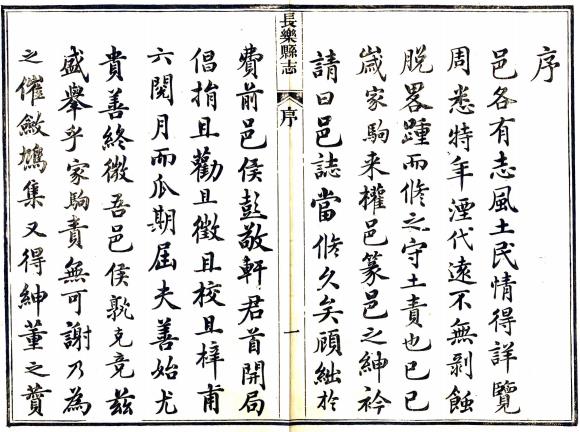 序
邑各有志風土民情得詳覽
周悉特年湮代遠不無剝蝕
脫畧踵而修之守土責也己巳
歲家駒来權邑篆邑之紳衿
請曰邑誌當修久矣顧絀於
長樂縣志
序
一
費前邑侯彭敬軒君首開局
倡捐且勸且徵且校且梓甫
六閱月而瓜期屆夫善始尤
貴善終微吾邑侯孰克竟兹
盛舉乎家駒責無可謝乃為
之催斂鳩集又得紳董之贊